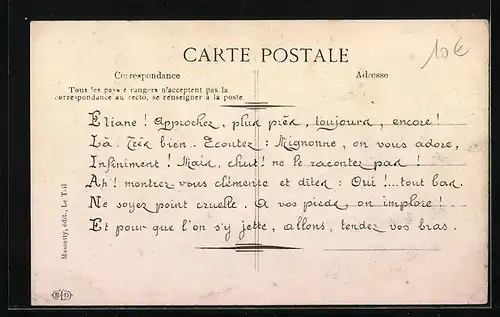 CARTE POSTALE
10€
Correspondance
Adresse
Tous les pays é rangers n'acceptent pas la
correspondance au recto, se renseigner à la poste
Eliane ! Approchez, plus près, toujours, encore !
Là. Très bien. Ecoutez : Mignonne, on vous adore,
Infiniment ! Mais, chut ! ne le racontez pas !
Ah ! montrez vous clémente et dites : Oui !... tout bas.
Ne soyez point cruelle. A vos pieds on implore !
Et pour que l'on s'y jette, allons, tendez vos bras.
Mascetty, édit., Le Teil
ELD